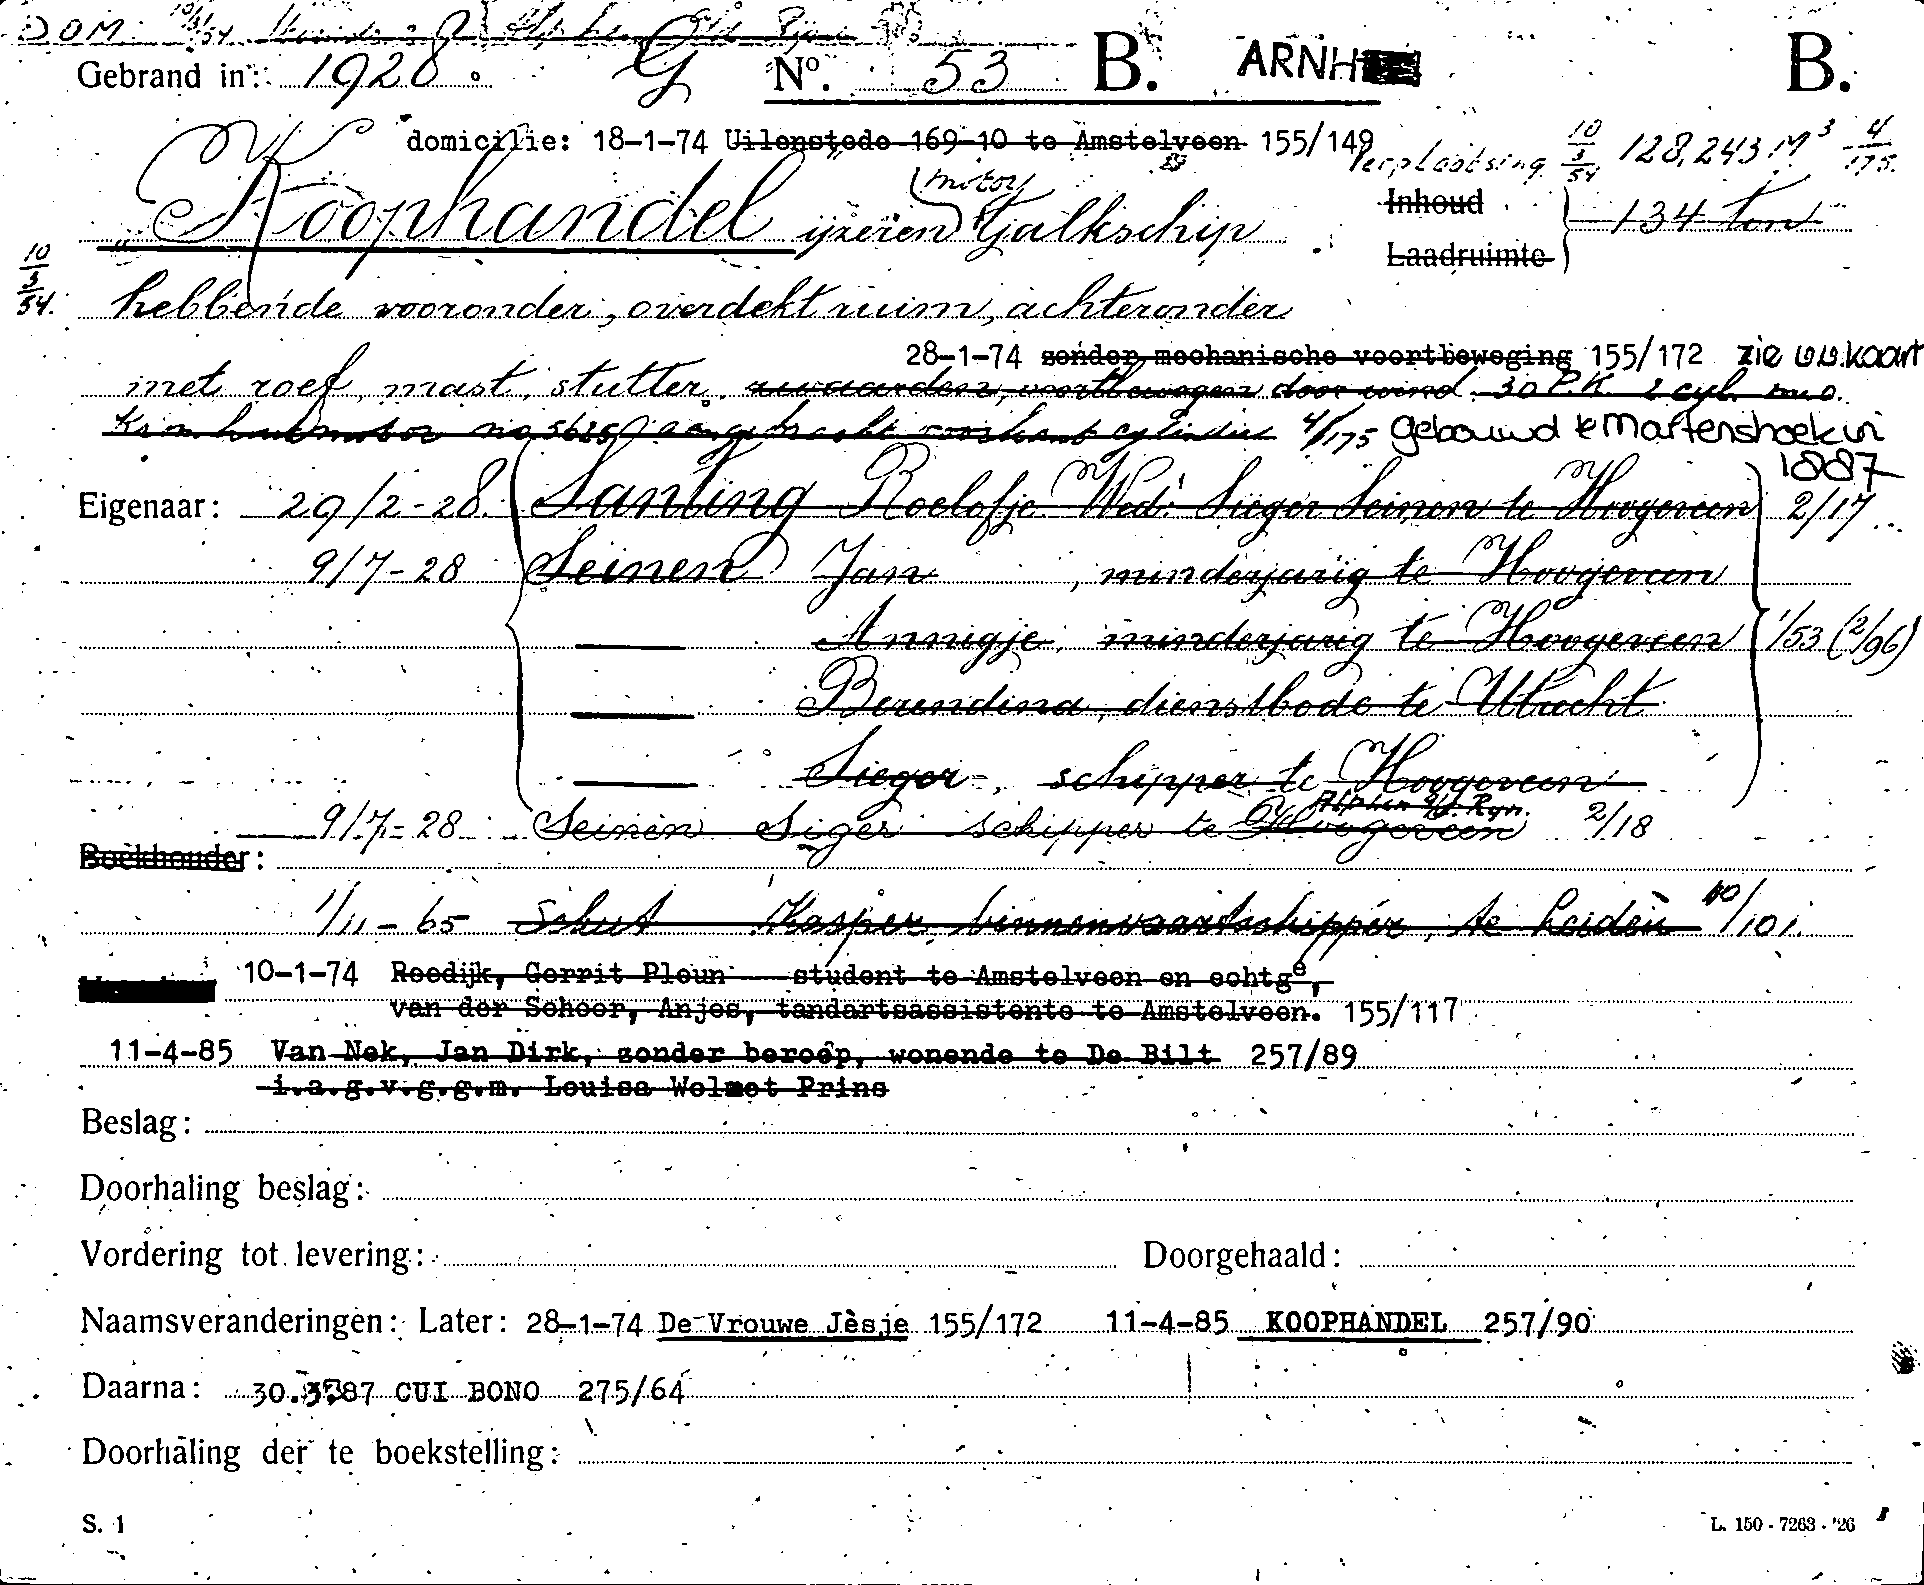 DOM. 10/3/54
Gebrand in: 1928. G No. 53 B. ARNH B.
domicilie: 18-1-74 Uilenstede 169-10 te Amstelveen 155/149
verplaatsing 10/3/54 128,243 M³ 4/175.
„Koophandel ijzeren (motor) Tjalkschip
Inhoud
Laadruimte } 134 ton
10/3/54. hebbende vooronder, overdekt ruim, achteronder
28-1-74 zonder mechanische voortbeweging 155/172 zie ommekaart
met roef, mast, stutter, zwaarden, voortbewogen door wind. 30 P.K. 2 cyl. m.o.
Kromhoutmotor no 5625 aangebracht voorkant cylinder 4/175 gebouwd te Martenshoek in 1887
Eigenaar: 29/2-28. Santing Roelofje Wed: Sieger Seinen te Hoogeveen 2/17
9/7-28 Seinen Jan, minderjarig te Hoogeveen
— Annigje, minderjarig te Hoogeveen 1/53 (2/96)
— Berendina, dienstbode te Utrecht
— Sieger, schipper te Hoogeveen
Alphen a/d. Ryn.
9/7-28 Seinen Siger schipper te Hoogeveen 2/18
Boekhouder:
1/11-65 Schut Kasper, binnenvaartschipper, te Leiden 40/101.
10-1-74 Reedijk, Gerrit Pleun student te Amstelveen en echtge,
van der Schoor, Anjes, tandartsassistente te Amstelveen. 155/117
11-4-85 Van Nek, Jan Dirk, zonder beroep, wonende te De Bilt 257/89
i.a.g.v.g.g.m. Louisa Wolmet Prins
Beslag:
Doorhaling beslag:
Vordering tot levering: Doorgehaald:
Naamsveranderingen: Later: 28-1-74 De Vrouwe Jèsje 155/172 11-4-85 KOOPHANDEL 257/90
Daarna: 30.3.87 CUI BONO 275/64
Doorhaling der te boekstelling:
S. 1 L. 150 - 7263 - '26